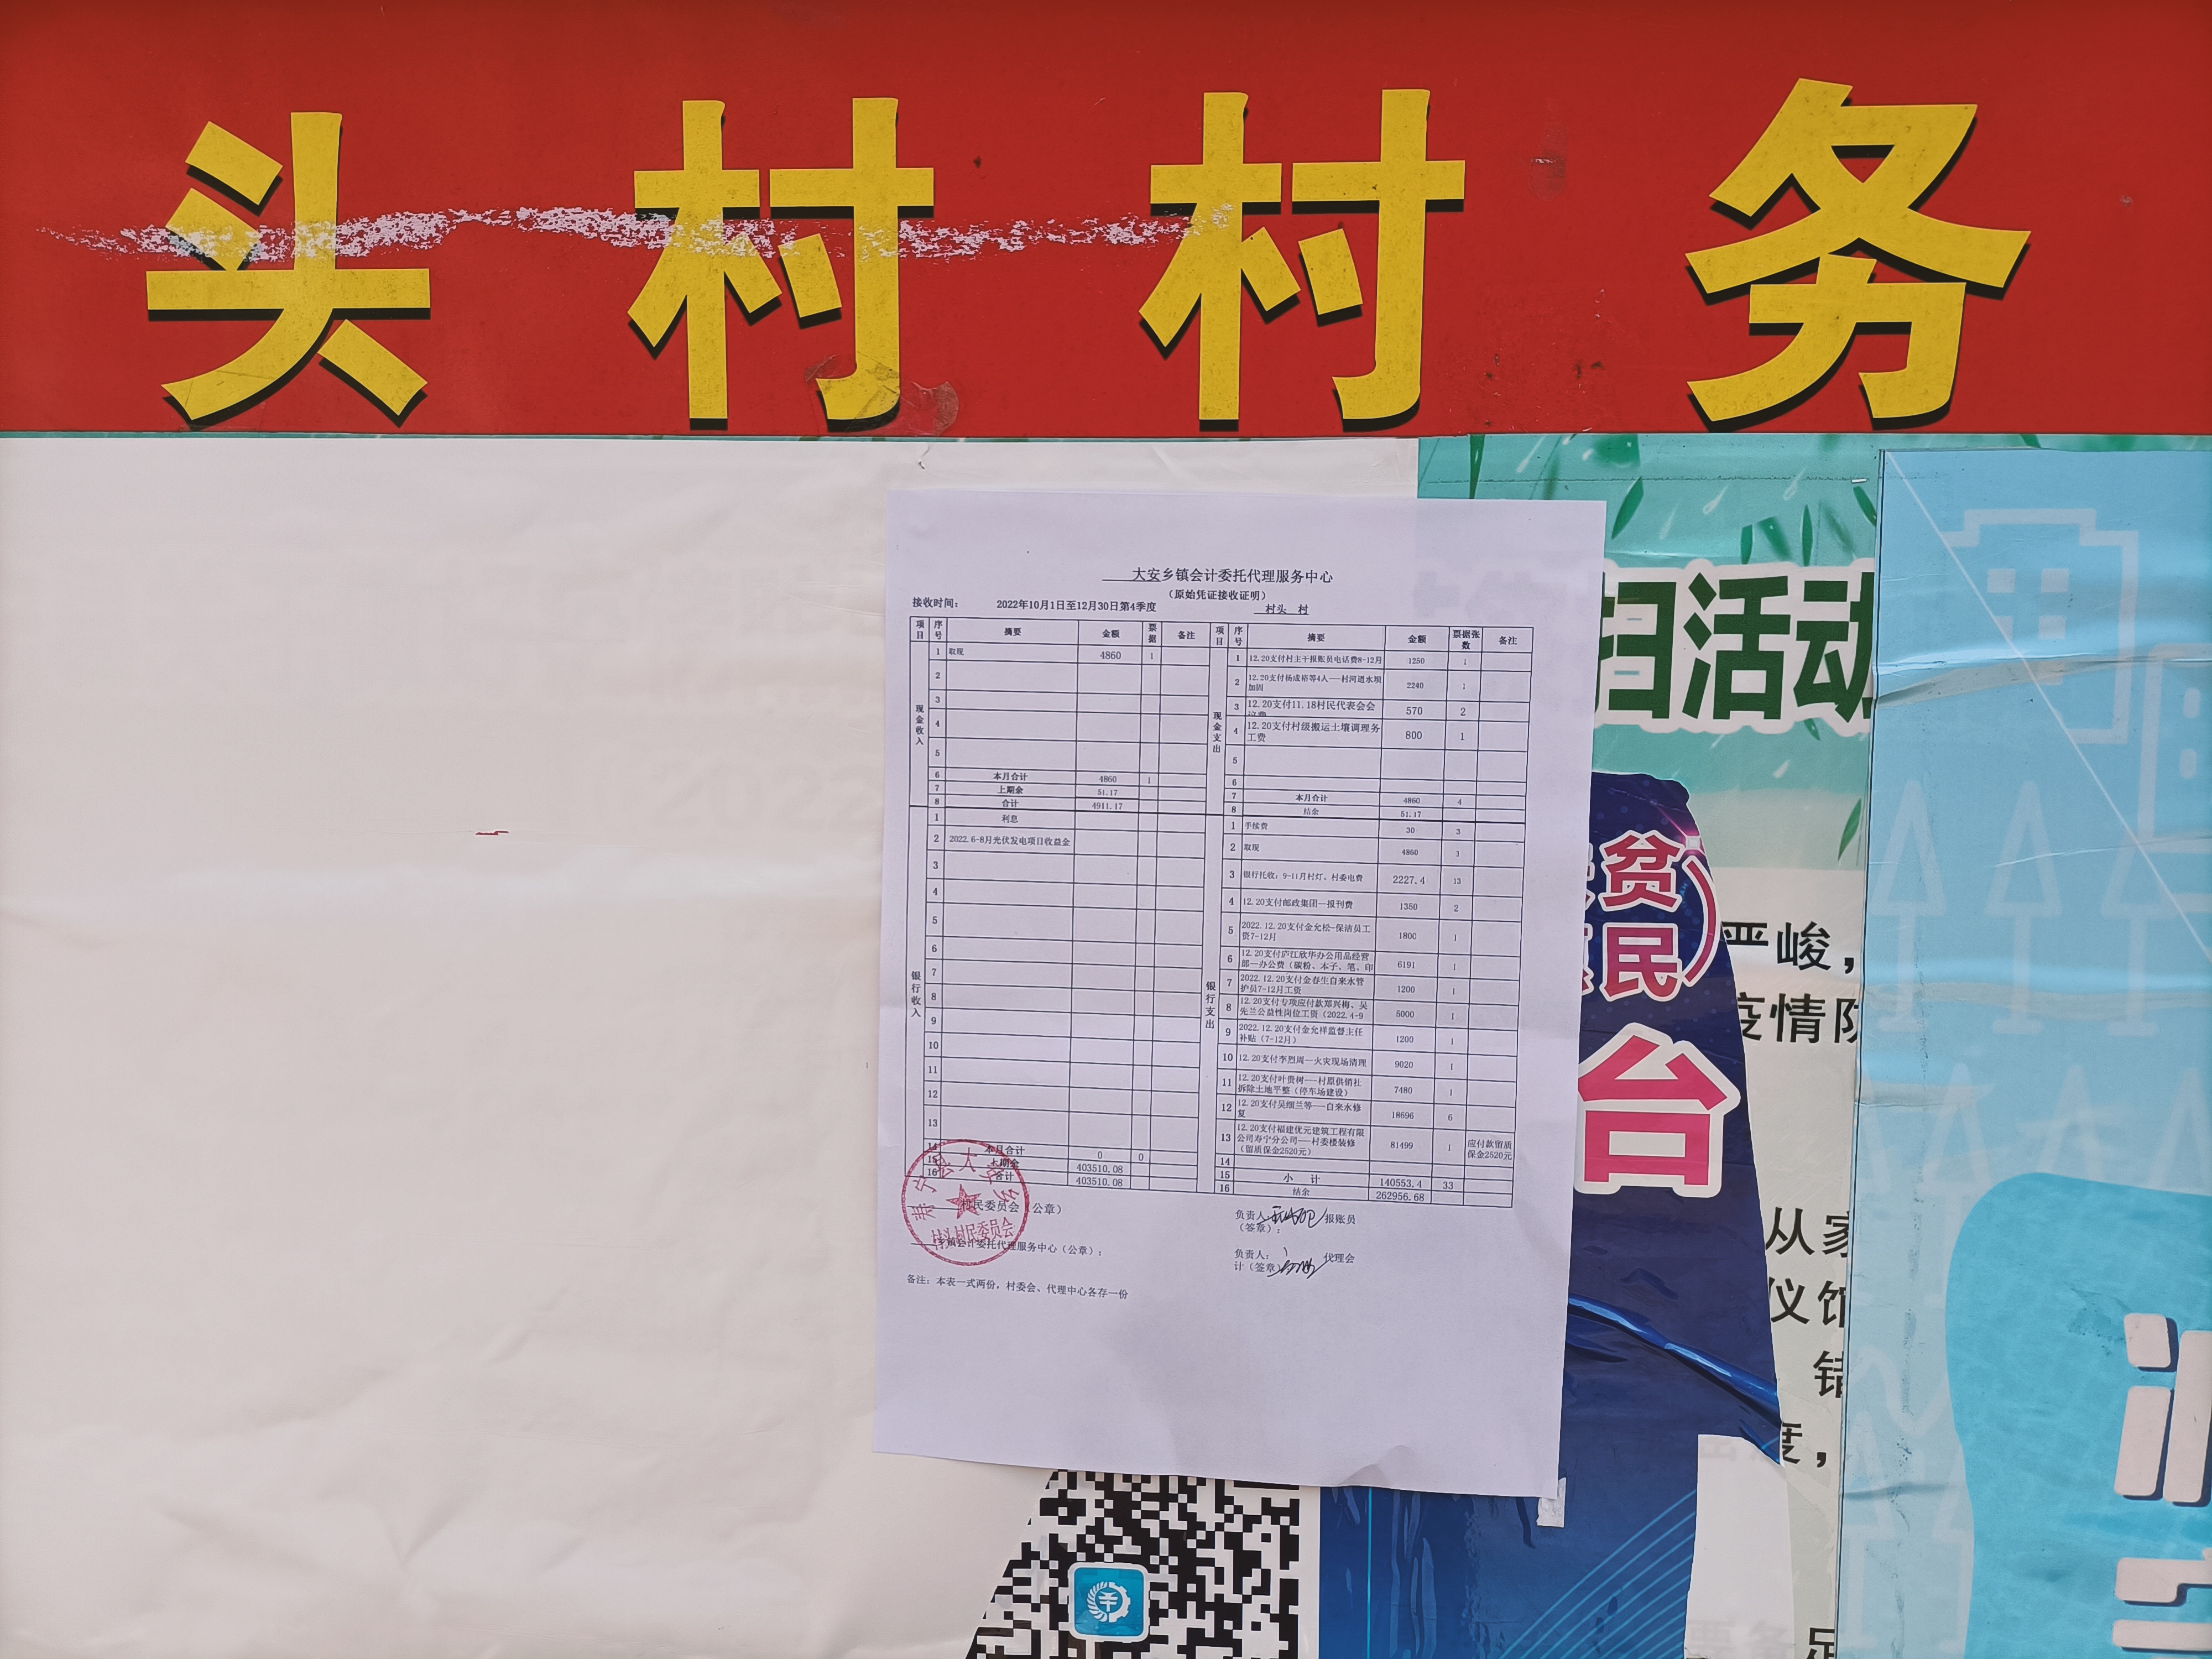 头村村务
大安乡镇会计委托代理服务中心
（原始凭证接收证明）
接收时间： 2022年10月1日至12月30日第4季度 村头 村
项目 序号 摘要 金额 票据 备注 项目 序号 摘要 金额 票据张数 备注
现金收入
1 取现 4860 1
2
3
4
5
6 本月合计 4860 1
7 上期余 51.17
8 合计 4911.17
现金支出
1 12.20支付村主干报账员电话费8-12月 1250 1
2 12.20支付杨成裕等4人---村河道水坝加固 2240 1
3 12.20支付11.18村民代表会会 570 2
4 12.20支付村级搬运土壤调理务工费 800 1
5
6
7 本月合计 4860 4
8 结余 51.17
银行收入
1 利息
2 2022.6-8月光伏发电项目收益金
3
4
5
6
7
8
9
10
11
12
13
14 本月合计 0 0
15 上期余 403510.08
16 合计 403510.08
银行支出
1 手续费 30 3
2 取现 4860 1
3 银行托收：9-11月村灯、村委电费 2227.4 13
4 12.20支付邮政集团--报刊费 1350 2
5 2022.12.20支付金允松-保洁员工资7-12月 1800 1
6 12.20支付庐江欣华办公用品经营部--办公费（碳粉、本子、笔、印 6191 1
7 2022.12.20支付金春生自来水管护员7-12月工资 1200 1
8 12.20支付专项应付款郑兴梅、吴先兰公益性岗位工资（2022.4-9 5000 1
9 2022.12.20支付金允祥监督主任补贴（7-12月） 1200 1
10 12.20支付李烈周--火灾现场清理 9020 1
11 12.20支付叶贵树---村原供销社拆除土地平整（停车场建设） 7480 1
12 12.20支付吴细兰等---自来水修复 18696 6
13 12.20支付福建优元建筑工程有限公司寿宁分公司---村委楼装修（留质保金2520元） 81499 1 应付款留质保金2520元
14
15 小 计 140553.4 33
16 结余 262956.68
村民委员会（公章）
寿宁县大安乡
村头村民委员会
负责人 报账员
（签章）：
乡镇会计委托代理服务中心（公章）：
负责人： 代理会
计（签章）
备注：本表一式两份，村委会、代理中心各存一份
扫活动
贫
民
台
严峻，
疫情防
从家
仪馆
度，